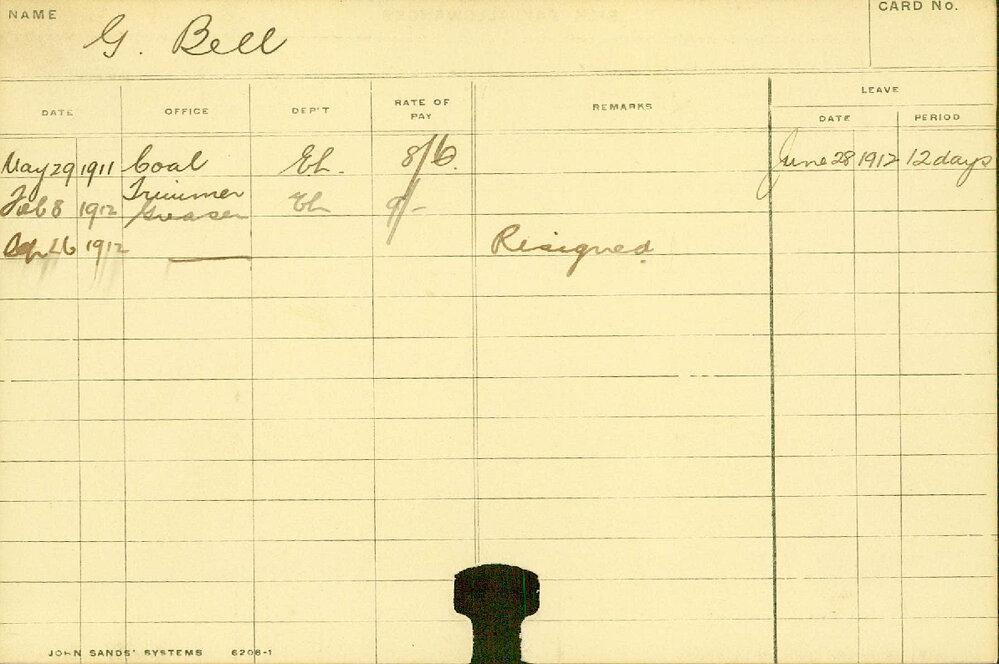 NAME
CARD No.
G. Bell
DATE OFFICE DEP'T RATE OF PAY REMARKS LEAVE
DATE PERIOD
May 29 1911 Coal Eh. 8/6 June 28 1912 12 days
Trimmer
Feb 8 1912 Greaser Eh 9/-
1912 Resigned
JOHN SANDS' SYSTEMS 6206-1